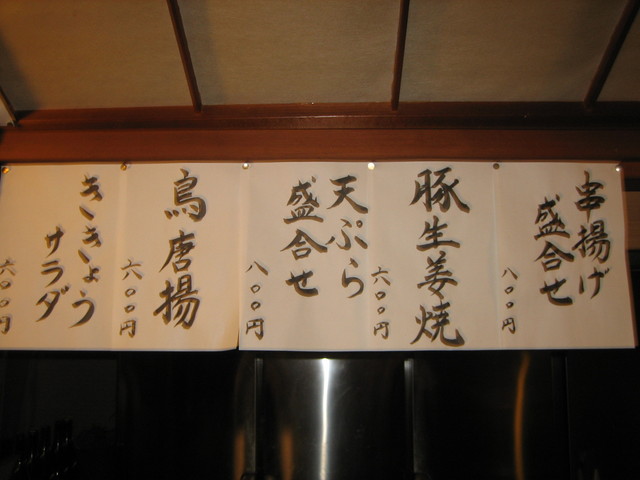 串揚げ
盛合せ
八〇〇円
豚生姜焼
六〇〇円
天ぷら
盛合せ
八〇〇円
鳥唐揚
六〇〇円
ききょう
サラダ
六〇〇円